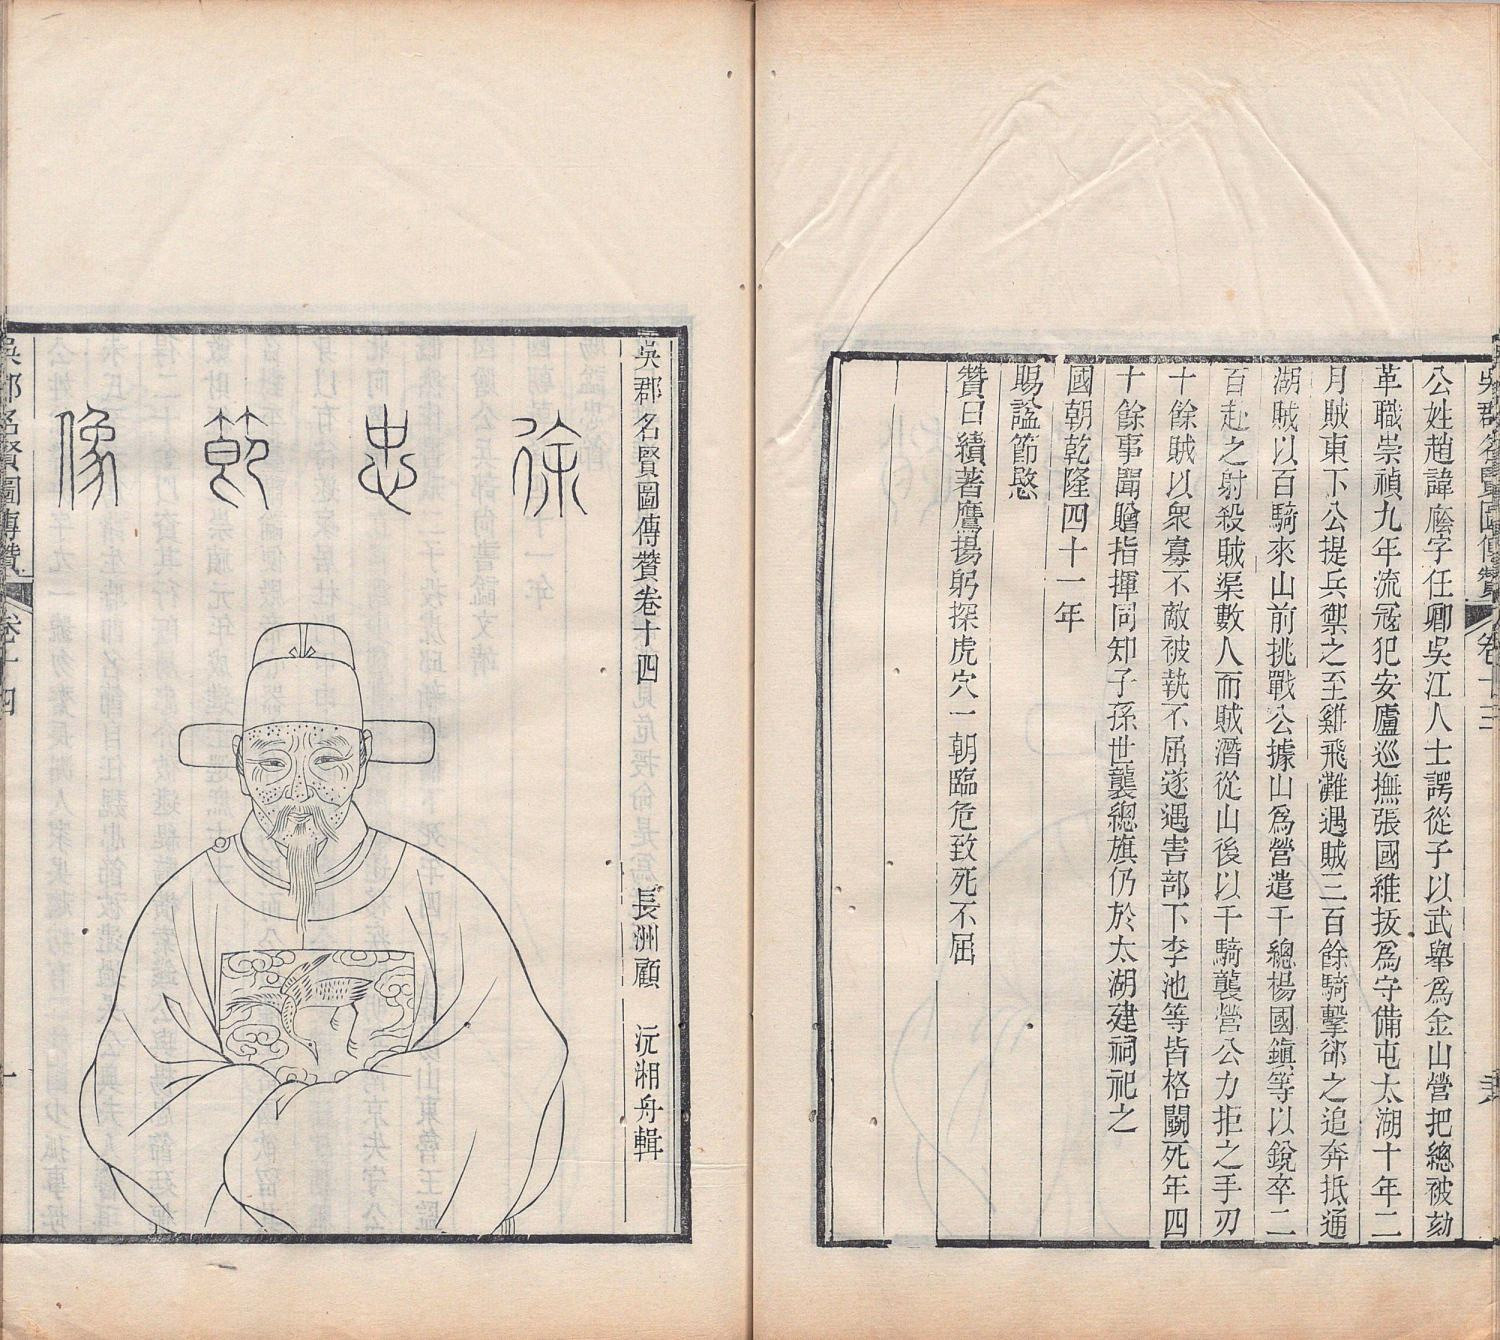 吳郡名賢圖傳贊 卷十三
公姓趙諱龐字任卿吳江人士諤從子以武舉爲金山營把總被劾
革職崇禎九年流冦犯安廬巡撫張國維拔爲守備屯太湖十年二
月賊東下公提兵禦之至雞飛灘遇賊三百餘騎擊郤之追奔抵通
湖賊以百騎來山前挑戰公據山爲營遣千總楊國鎮等以銳卒二
百赴之射殺賊渠數人而賊潛從山後以千騎襲營公力拒之手刃
十餘賊以衆寡不敵被執不屈遂遇害部下李池等皆格鬭死年四
十餘事聞贈指揮同知子孫世襲總旗仍於太湖建祠祀之
國朝乾隆四十一年
賜諡節愍
贊曰績著鷹揚躬探虎穴一朝臨危致死不屈
吳郡名賢圖傳贊卷十四
長洲顧 沅湘舟輯
徐忠節像
吳郡名賢圖傳贊 卷十四 一